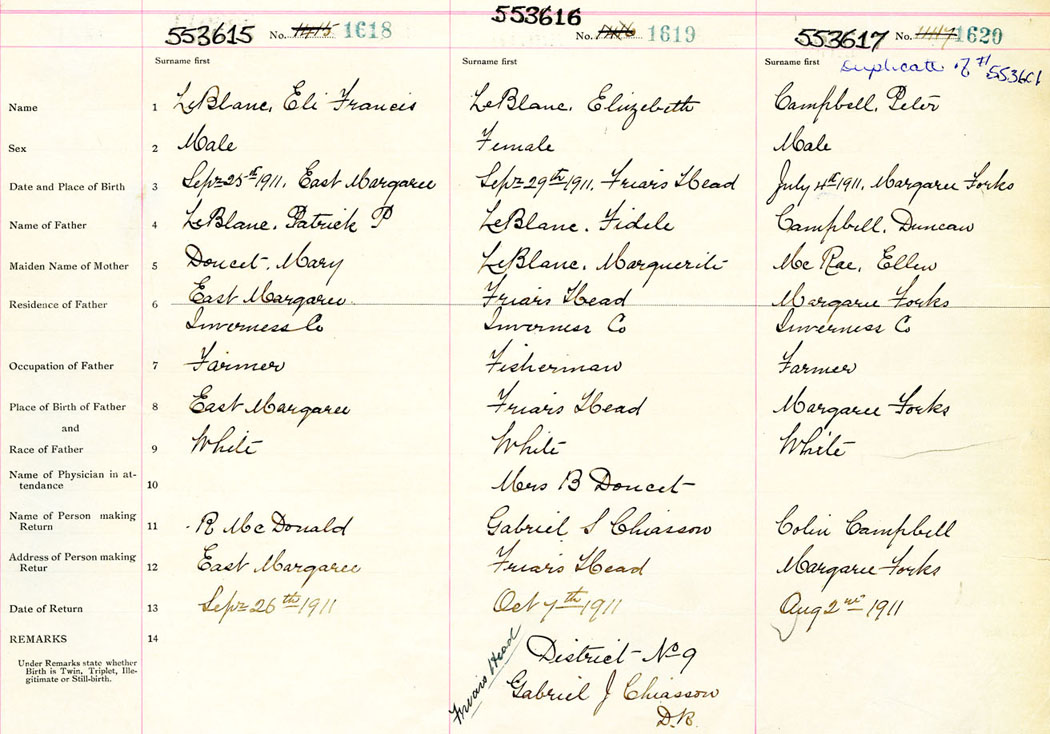 553616
553615 No. 1618 No. 1619 553617 No. 1620
Surname first Surname first Surname first Duplicate of # 553601
Name 1 LeBlanc, Eli Francis LeBlanc, Elizebeth Campbell, Peter
Sex 2 Male Female Male
Date and Place of Birth 3 Sept 25th 1911, East Margaree Sept 29th 1911, Friars Head July 4th 1911, Margaree Forks
Name of Father 4 LeBlanc, Patrick P LeBlanc, Fidele Campbell, Duncan
Maiden Name of Mother 5 Doucet, Mary LeBlanc, Marguerite Mc Rae, Ellen
Residence of Father 6 East Margaree Friars Head Margaree Forks
Inverness Co Inverness Co Inverness Co
Occupation of Father 7 Farmer Fisherman Farmer
Place of Birth of Father 8 East Margaree Friars Head Margaree Forks
and
Race of Father 9 White White White
Name of Physician in at-
tendance 10 Mrs B Doucet
Name of Person making
Return 11 R McDonald Gabriel S Chiasson Colin Campbell
Address of Person making
Retur 12 East Margaree Friars Head Margaree Forks
Date of Return 13 Sept 26th 1911 Oct 7th 1911 Aug 2nd 1911
REMARKS 14
Under Remarks state whether
Birth is Twin, Triplet, Ille-
gitimate or Still-birth.
Friars Head
District No 9
Gabriel J Chiasson
D.R.